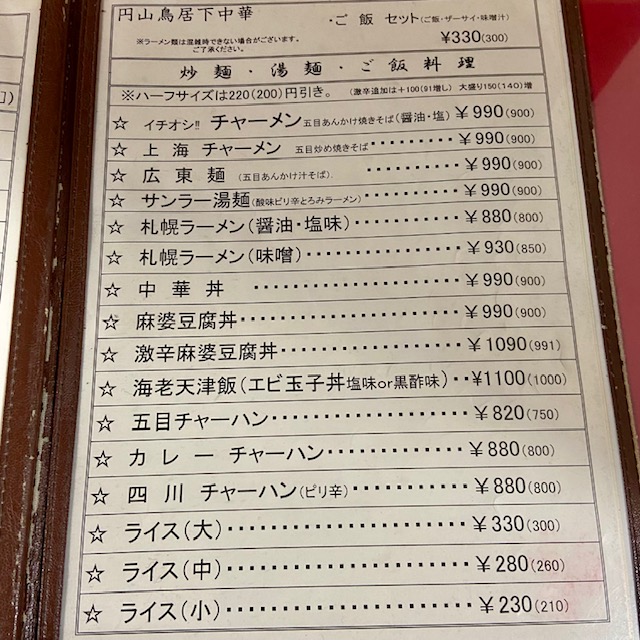 円山鳥居下中華
・ご飯 セット(ご飯・ザーサイ・味噌汁)
※ラーメン類は混雑時できない場合がございます。
ご了承ください。
¥330(300)
炒麺・湯麺・ご飯料理
※ハーフサイズは220(200)円引き。 (激辛追加は+100(91増し) 大盛り150(140)増
☆ イチオシ!! チャーメン五目あんかけ焼きそば(醤油・塩) ¥990(900)
☆ 上海 チャーメン 五目炒め焼きそば・・・・・・・・・¥990(900)
☆ 広東麺 (五目あんかけ汁そば). ・・・・・・・・・・¥990(900)
☆ サンラー湯麺(酸味ピリ辛とろみラーメン)・・・・・・・・・・¥990(900)
☆ 札幌ラーメン(醤油・塩味)・・・・・・・・・・¥880(800)
☆ 札幌ラーメン(味噌)・・・・・・・・・・・・・・¥930(850)
☆ 中華丼 ・・・・・・・・・・・・・・・・・・・¥990(900)
☆ 麻婆豆腐丼・・・・・・・・・・・・・・・・・・・・¥990(900)
☆ 激辛麻婆豆腐丼・・・・・・・・・・・・・・・・¥1090(991)
☆ 海老天津飯(エビ玉子丼塩味or黒酢味)・・¥1100(1000)
☆ 五目チャーハン・・・・・・・・・・・・・・・・・¥820(750)
☆ カレー チャーハン・・・・・・・・・・・・・¥880(800)
☆ 四川 チャーハン(ピリ辛)・・・・・・・・・・・¥880(800)
☆ ライス(大)・・・・・・・・・・・・・・・・・・・・・¥330(300)
☆ ライス(中)・・・・・・・・・・・・・・・・・・・・・¥280(260)
☆ ライス(小)・・・・・・・・・・・・・・・・・・・・・¥230(210)